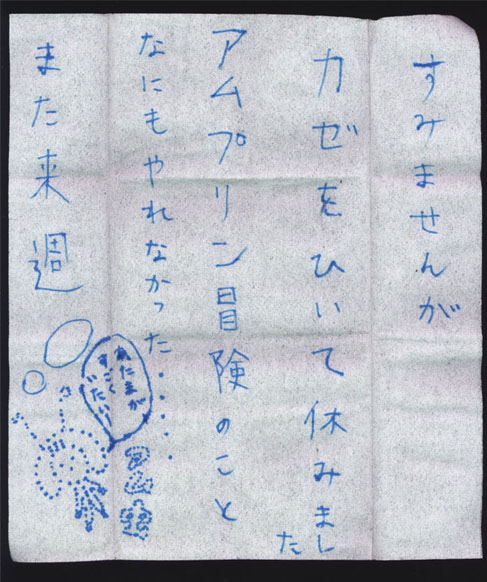 すみませんが
カゼをひいて休みました
アムプリン冒険のこと
なにもやれなかった・・・・・・
また来週
あたまが
すごく
いたい